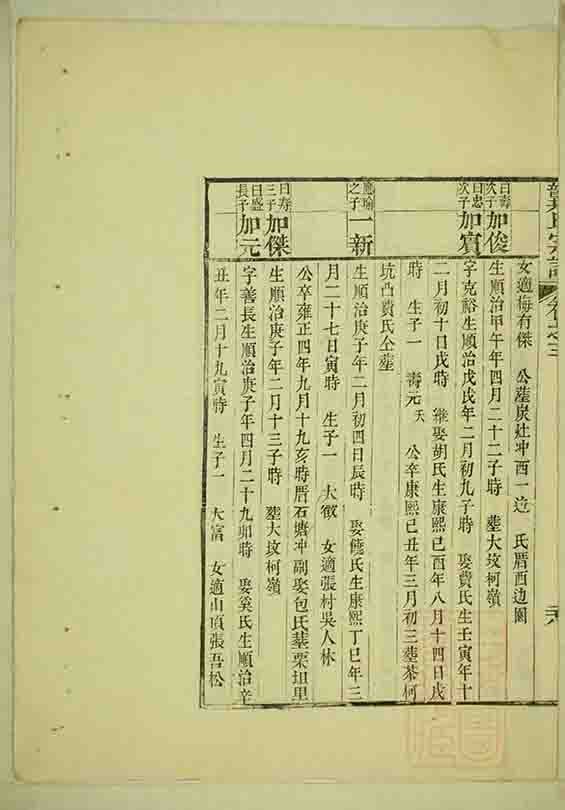 氏宗譜 卷之三
女適梅有傑 公塟炭灶冲西一边 氏厝西边園
曰壽次子 加俊
生順治甲午年四月二十二子時 塟大坟柯嶺
曰忠次子 加賓
字克裕生順治戊戌年二月初九子時 娶費氏生壬寅年十
二月初十日戌時 継娶胡氏生康熙己酉年八月十四日戌
時 生子一 壽元夭 公卒康熙己丑年三月初三塟茶柯
坑凸費氏仝塟
應瑜之子 一新
生順治庚子年二月初四日辰時 娶熊氏生康熙丁巳年三
月二十七日寅時 生子一 大徵 女適張村吳人林
公卒雍正四年九月十九亥時厝石塘冲 副娶包氏塟栗坦里
曰寿三子 加傑
生順治庚子年二月十三子時 塟大坟柯嶺
曰盛長子 加元
字善長生順治庚子年四月二十九卯時 娶奚氏生順治辛
丑年二月十九寅時 生子一 大富 女適山頂張吾松